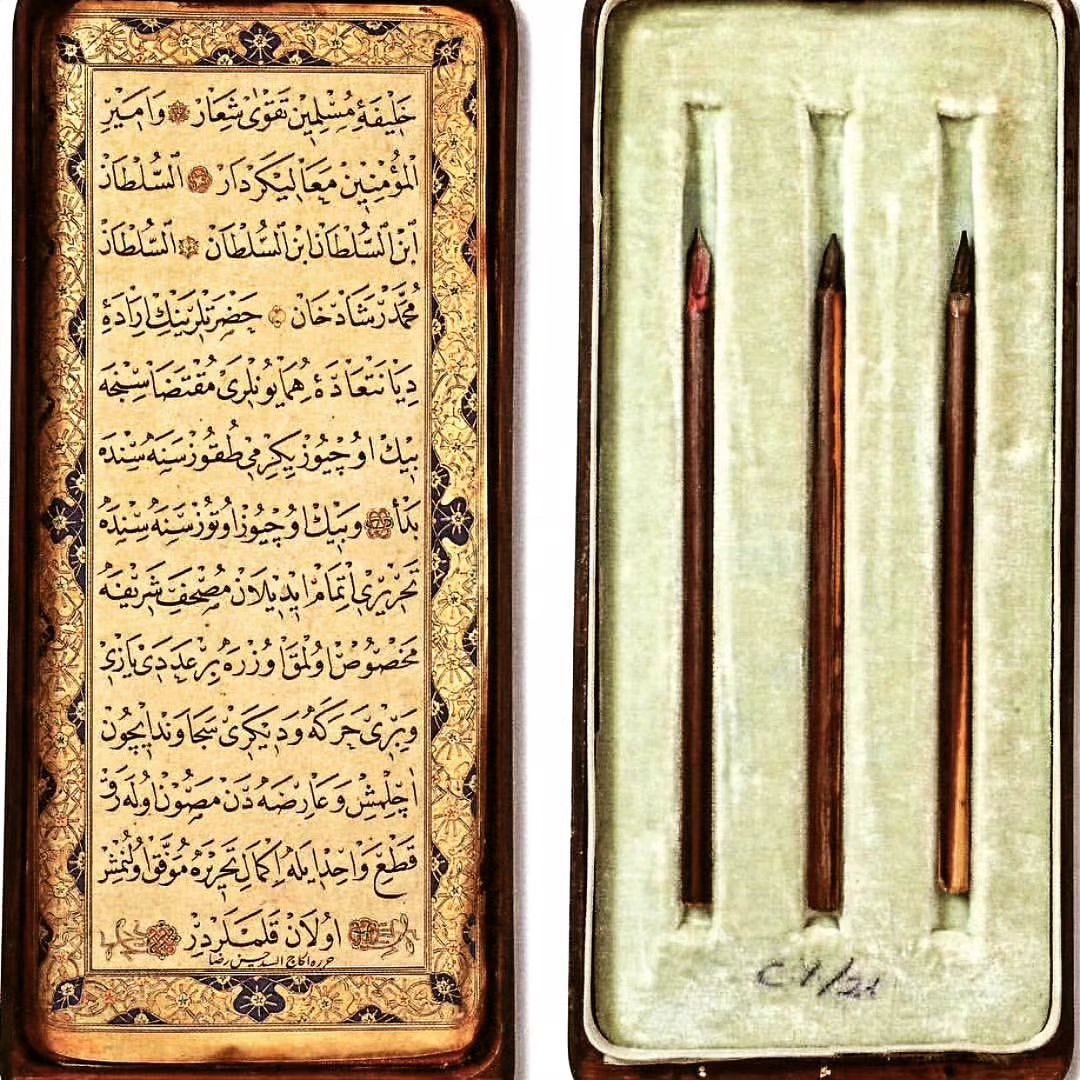 خَلِيفَهٔ مُسْلِمِينْ تَقْوٰى شِعَارْ وَ اَمِيرِ
الْمُؤْمِنِينْ مَعَالِيكَرْدَارْ اَلسُّلْطَانْ
اِبْنِ السُّلْطَانْ اِبْنِ السُّلْطَانْ اَلسُّلْطَانْ
مُحَمَّدْ رَشَادْ خَانْ حَضْرَتْلَرِينِكْ اِرَادَهٔ
دِيَانَتْعَادَهٔ هُمَايُونْلَرِى مُقْتَضَاسِنْجَه
بِيكْ اوُچيُوزْ يِكِرْمِى طُقُوزْ سَنَه سِنْدَه
بَدْأ وَ بِيكْ اوُچيُوزْ اوُتُوزْ سَنَه سِنْدَه
تَحْرِيرِى اِتْمَامْ ايدِيلَانْ مُصْحَفِ شَرِيفَه
مَخْصُوصْ اوُلْمَقْ اوُزْرَه بِرْ عَدَدِى يَازِى
وَ بِرِى حَرَكَه وَ دِيكَرِى سَجَاوَنْد ايچُونْ
آچِلْمِشْ وَ عَارِضَه دَنْ مَصُونْ اوُلَه رَقْ
قَطْعِ وَاحِدْ ايلَه اِكْمَالِ تَحْرِيرَه مُوَفَّقْ اوُلُنْمِشْ
اوُلَانْ قَلَمْلَرْدِرْ
حرره الحاج السيد حسين رضا